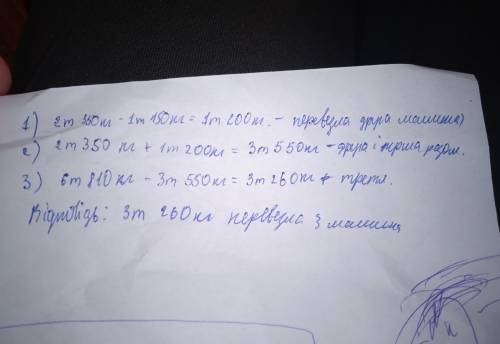 1) 2т 350кг - 1т 150кг = 1т 200кг. - перевезла друга машина)
2) 2т 350 кг + 1т 200кг = 3т 550кг - друга і перша разом.
3) 6т 810 кг - 3т 550кг = 3т 260кг - третя.
Відповідь: 3т 260кг перевезла 3 машина